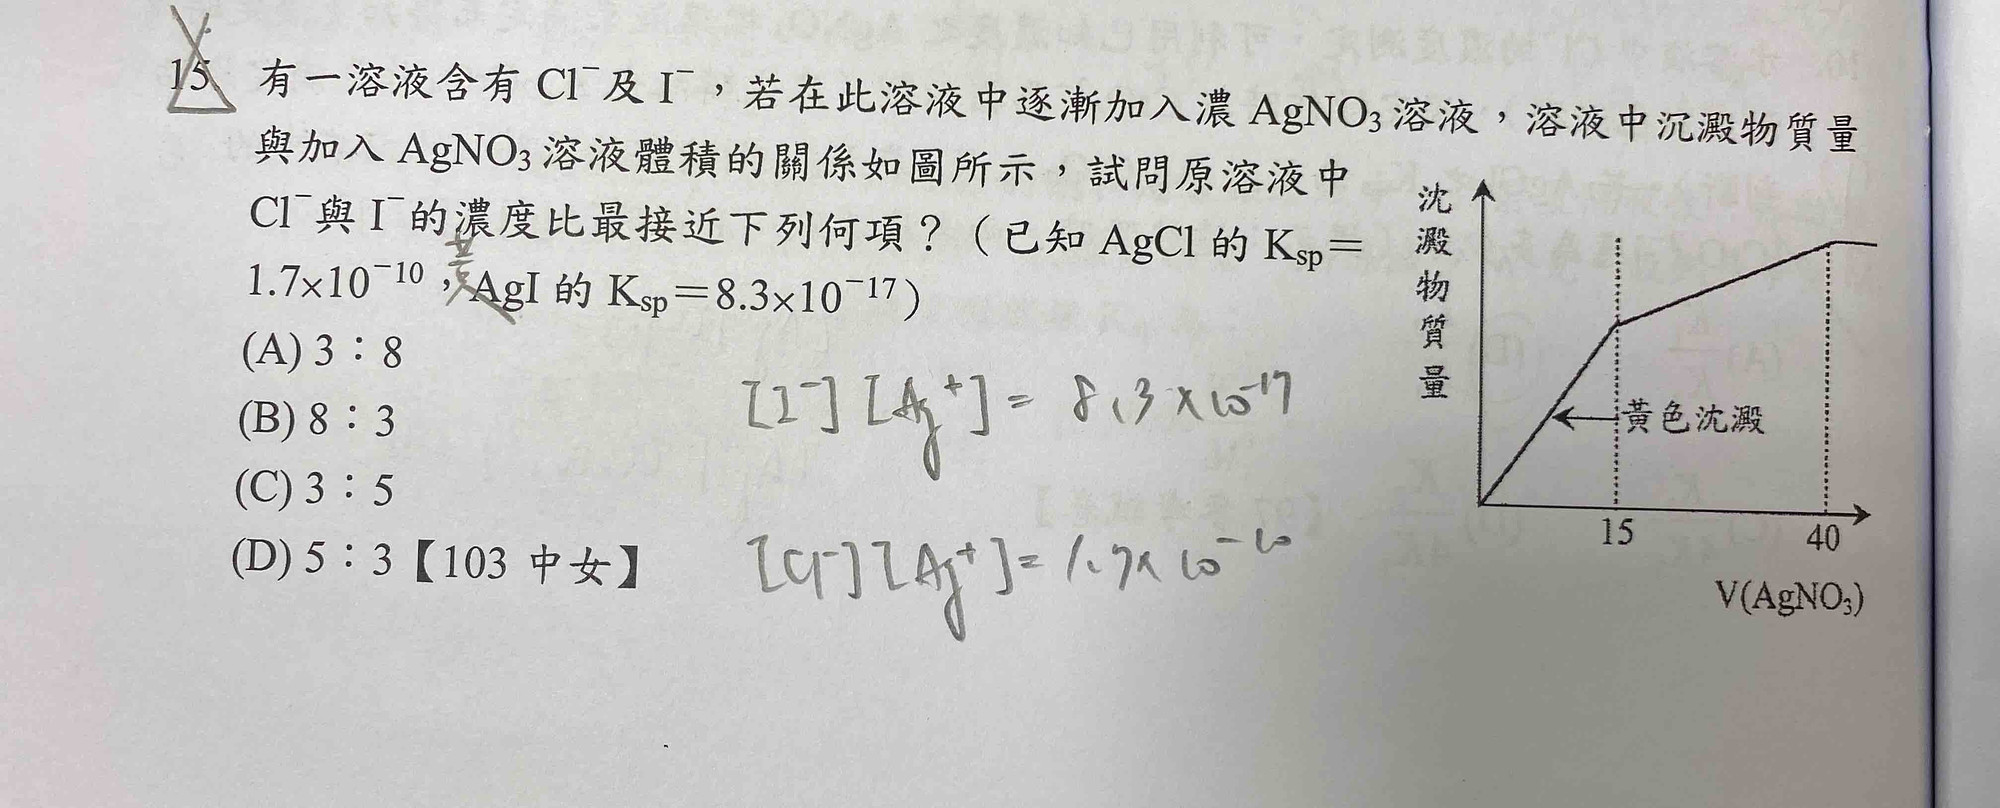 15. 有一溶液含有 Cl⁻及 I⁻，若在此溶液中逐漸加入濃 AgNO₃ 溶液，溶液中沉澱物質量
與加入 AgNO₃ 溶液體積的關係如圖所示，試問原溶液中
Cl⁻與 I⁻的濃度比最接近下列何項？（已知 AgCl 的 Ksp＝
1.7×10⁻¹⁰，AgI 的 Ksp＝8.3×10⁻¹⁷）
黃
(A) 3：8
(B) 8：3
(C) 3：5
(D) 5：3【103 中女】
[I⁻][Ag⁺]= 8.3×10⁻¹⁷
[Cl⁻][Ag⁺]= 1.7×10⁻¹⁰
沈澱物質量
黃色沈澱
15
40
V(AgNO₃)